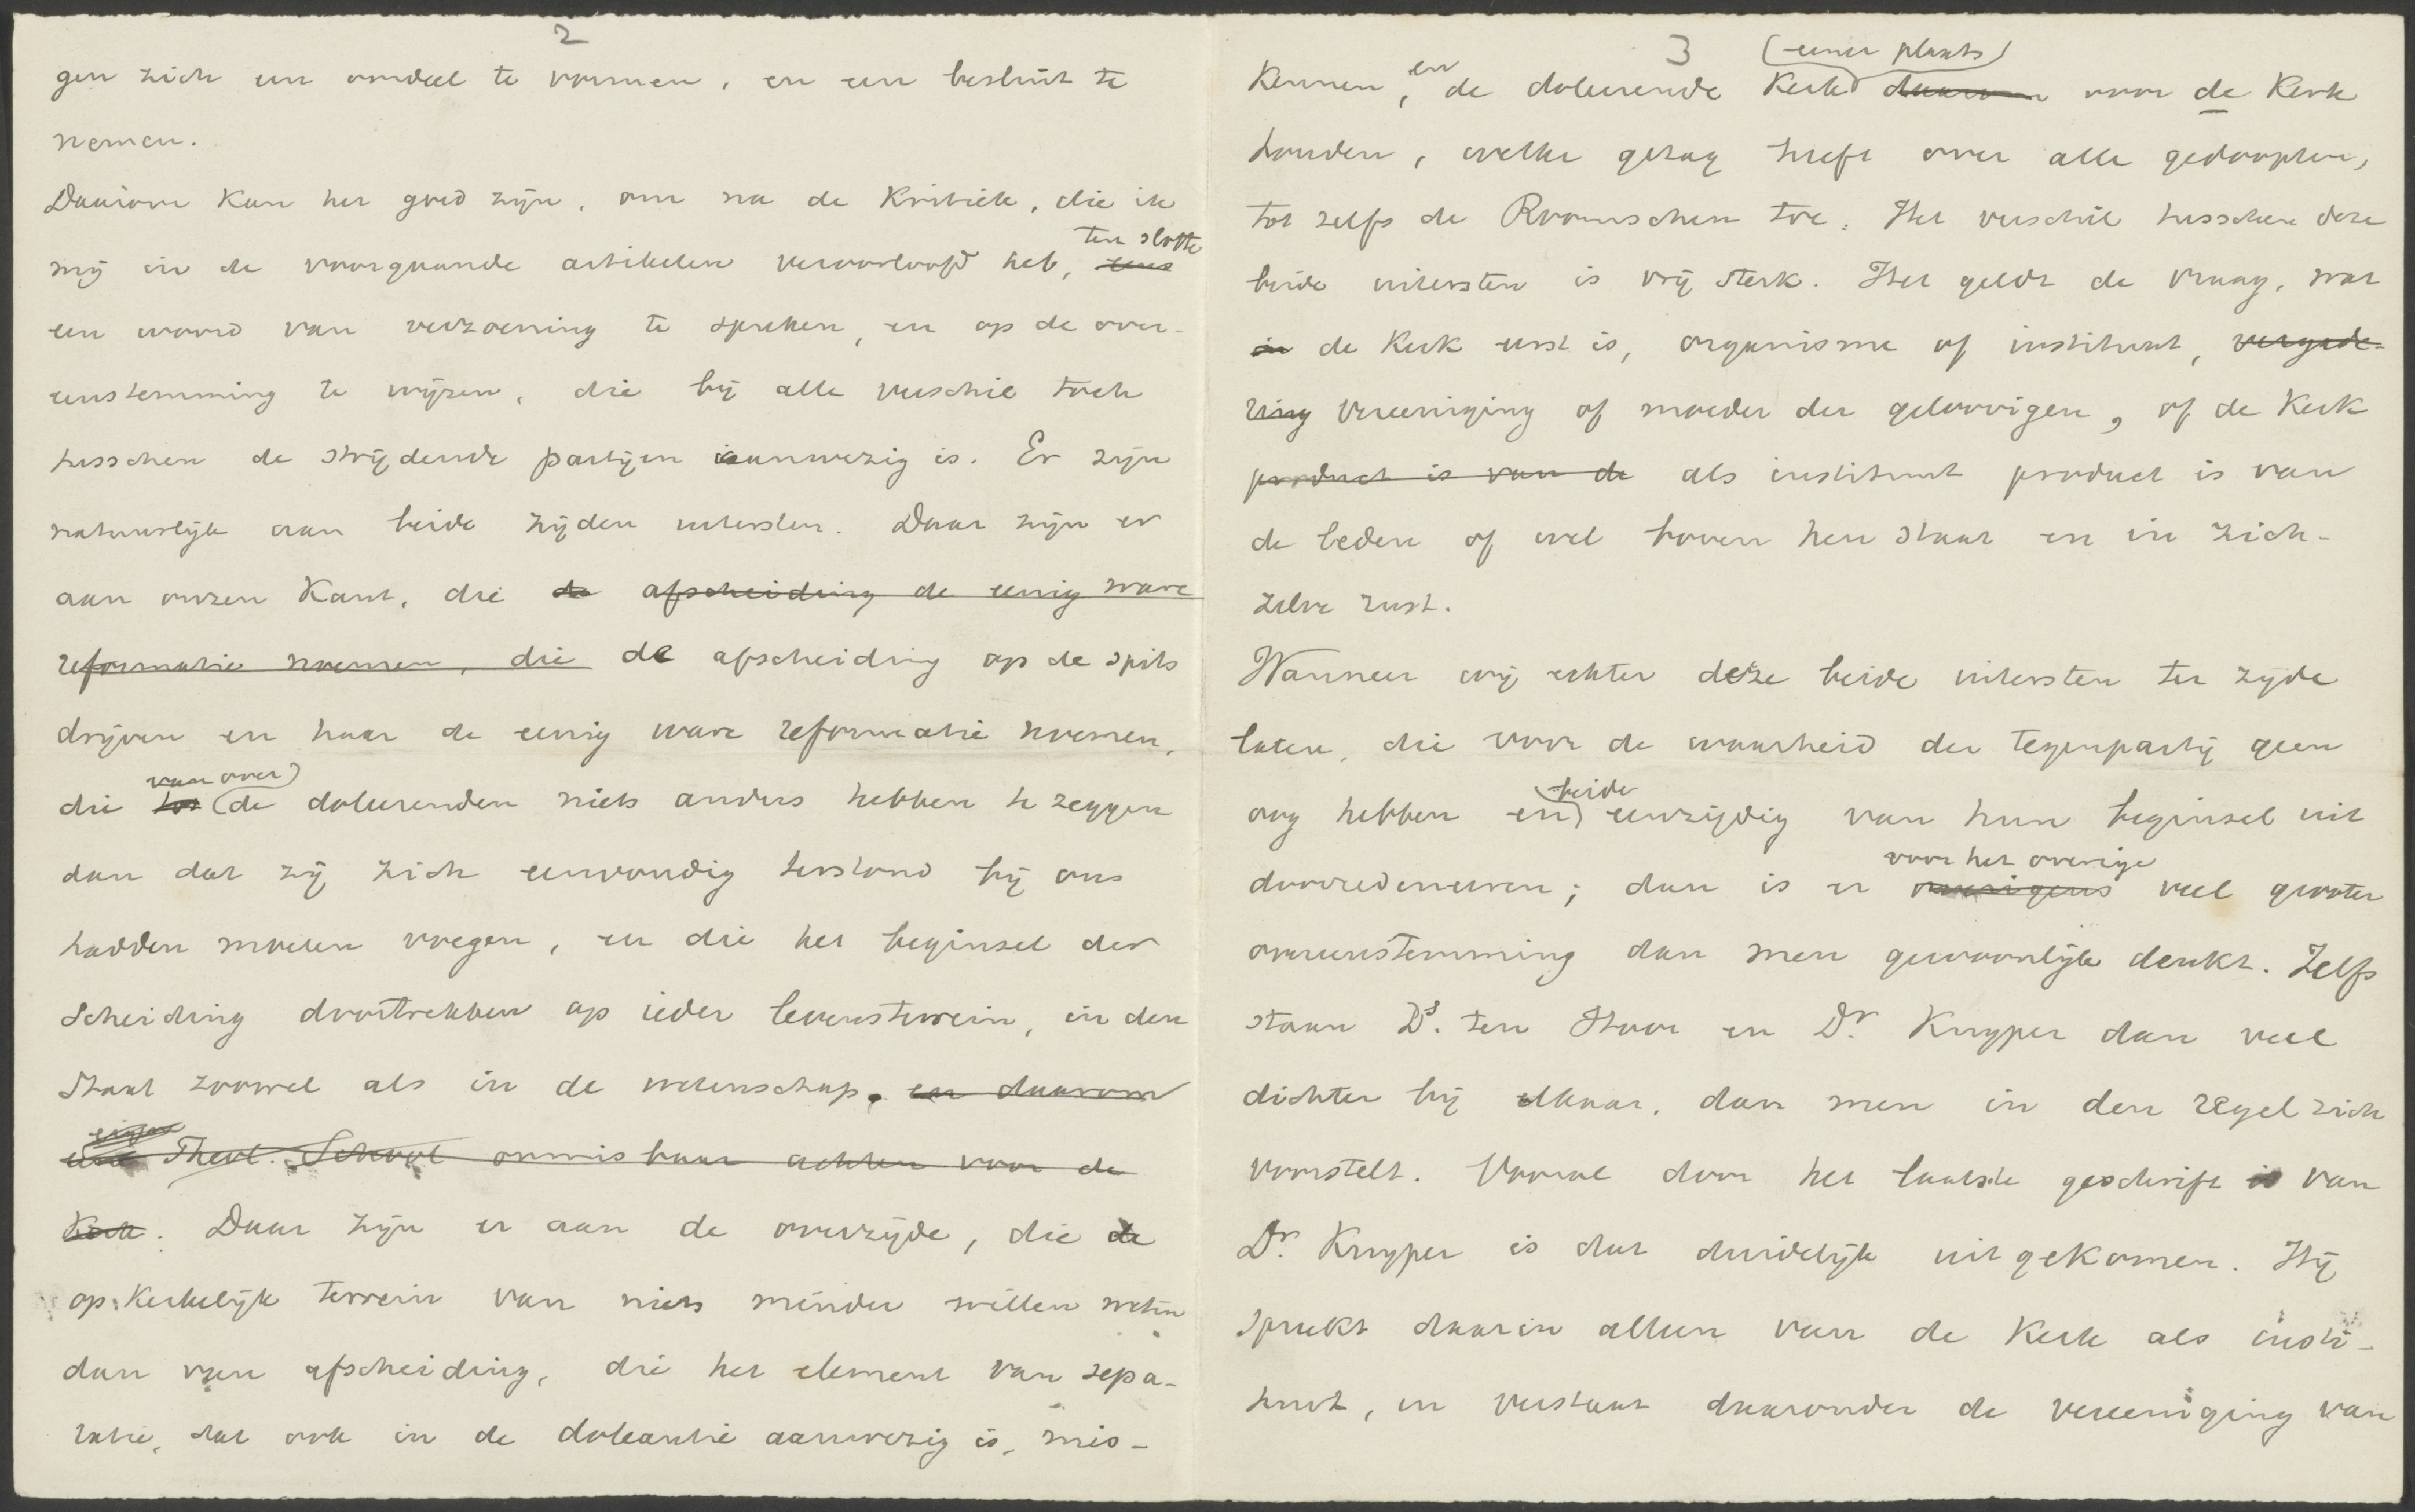 2
gen zich een oordeel te vormen, en een besluit te
nemen.
Daarom kan het goed zijn, om na de kritiek, die ik
ten slotte
mij in de voorgaande artikelen veroorloofd heb, eens
een woord van verzoening te spreken, en op de over-
eenstemming te wijzen, die bij alle verschil toch
tusschen de strijdende partijen aanwezig is. Er zijn
natuurlijk aan beide zijden uitersten. Daar zijn er
aan onzen kant, die de afscheiding de eenig ware
reformatie noemen, die de afscheiding op de spits
drijven en haar de eenig ware reformatie noemen,
van over
die tot de doleerenden niets anders hebben te zeggen
dan dat zij zich eenvoudig terstond bij ons
hadden moeten voegen, en die het beginsel der
scheiding doortrekken op ieder levensterrein, in den
Staat zoowel als in de wetenschap. en daarom
eigen
eene Theol. School onmisbaar achten voor de
Kerk. Daar zijn er aan de overzijde, die de
op kerkelijk terrein van niets minder willen weten
dan van afscheiding, die het element van sepa-
ratie, dat ook in de doleantie aanwezig is, mis-
3
(eener plaats)
kennen, en de doleerende Kerk daarom voor de Kerk
houden, welke gezag heeft over alle gedoopten,
tot zelfs de Roomschen toe. Het verschil tusschen deze
beide uitersten is vrij sterk. Het geldt de vraag, wat
in de Kerk eerst is, organisme of instituut, vergade-
ring vereeniging of moeder der geloovigen, of de Kerk
product is van de als instituut product is van
de leden of wel boven hen staat en in zich-
zelve rust.
Wanneer wij echter deze beide uitersten ter zijde
laten, die voor de waarheid der tegenpartij geen
beide
oog hebben en eenzijdig van hun beginsel uit
voor het overige
doorredeneeren; dan is er overigens veel grooter
overeenstemming dan men gewoonlijk denkt. Zelfs
staan Ds. ten Hoor en Dr. Kuyper dan veel
dichter bij elkaar, dan men in den regel zich
voorstelt. Vooral door het laatste geschrift is van
Dr. Kuyper is dat duidelijk uitgekomen. Hij
spreekt daarin alleen van de Kerk als insti-
tuut, en verstaat daaronder de vereeniging van